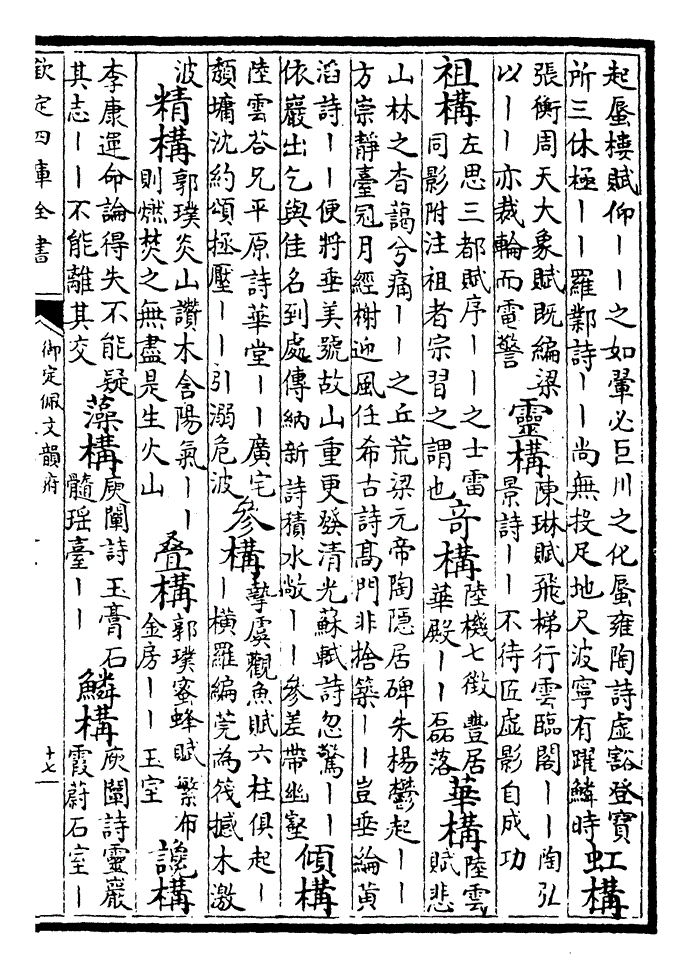 起蜃樓賦仰丨丨之如翬必巨川之化蜃雍陶詩虛豁登寶
所三休極丨丨羅鄴詩丨丨尚無投足地尺波寧有躍鱗時
虹構
張衡周天大象賦既編梁
以丨丨亦裁輪而電警
靈構
陳琳賦飛梯行雲臨閣丨丨陶弘
景詩丨丨不待匠虛影自成功
祖構
左思三都賦序丨丨之士雷
同影附注祖者宗習之謂也
奇構
陸機七徵豐居
華殿丨丨磊落
華構
陸雲
賦悲
山林之杳藹兮痛丨丨之丘荒梁元帝陶隱居碑朱楊鬱起丨丨
方崇靜臺冠月經榭迎風任希古詩髙門非捨築丨丨豈垂綸黄
滔詩丨丨便將垂美號故山重更發清光蘇軾詩忽驚丨丨
依巖出乞與佳名到處傳納新詩積水敞丨丨參差帶幽壑
傾構
陸雲荅兄平原詩華堂丨丨廣宅
頽墉沈約頌拯壓丨丨引溺危波
參構
摯虞觀魚賦六柱俱起丨
丨横羅編莞為筏撼木激
波
精構
郭璞炎山讚木含陽氣丨丨
則燃焚之無盡是生火山
叠構
郭璞蜜蜂賦繁布
金房丨丨玉室
讒構
李康運命論得失不能疑
其志丨丨不能離其交
藻構
庾闡詩玉膏石
髓瑶臺丨丨
鱗構
庾闡詩靈巖
霞蔚石室丨
欽定四庫全書
御定佩文韻府
十七